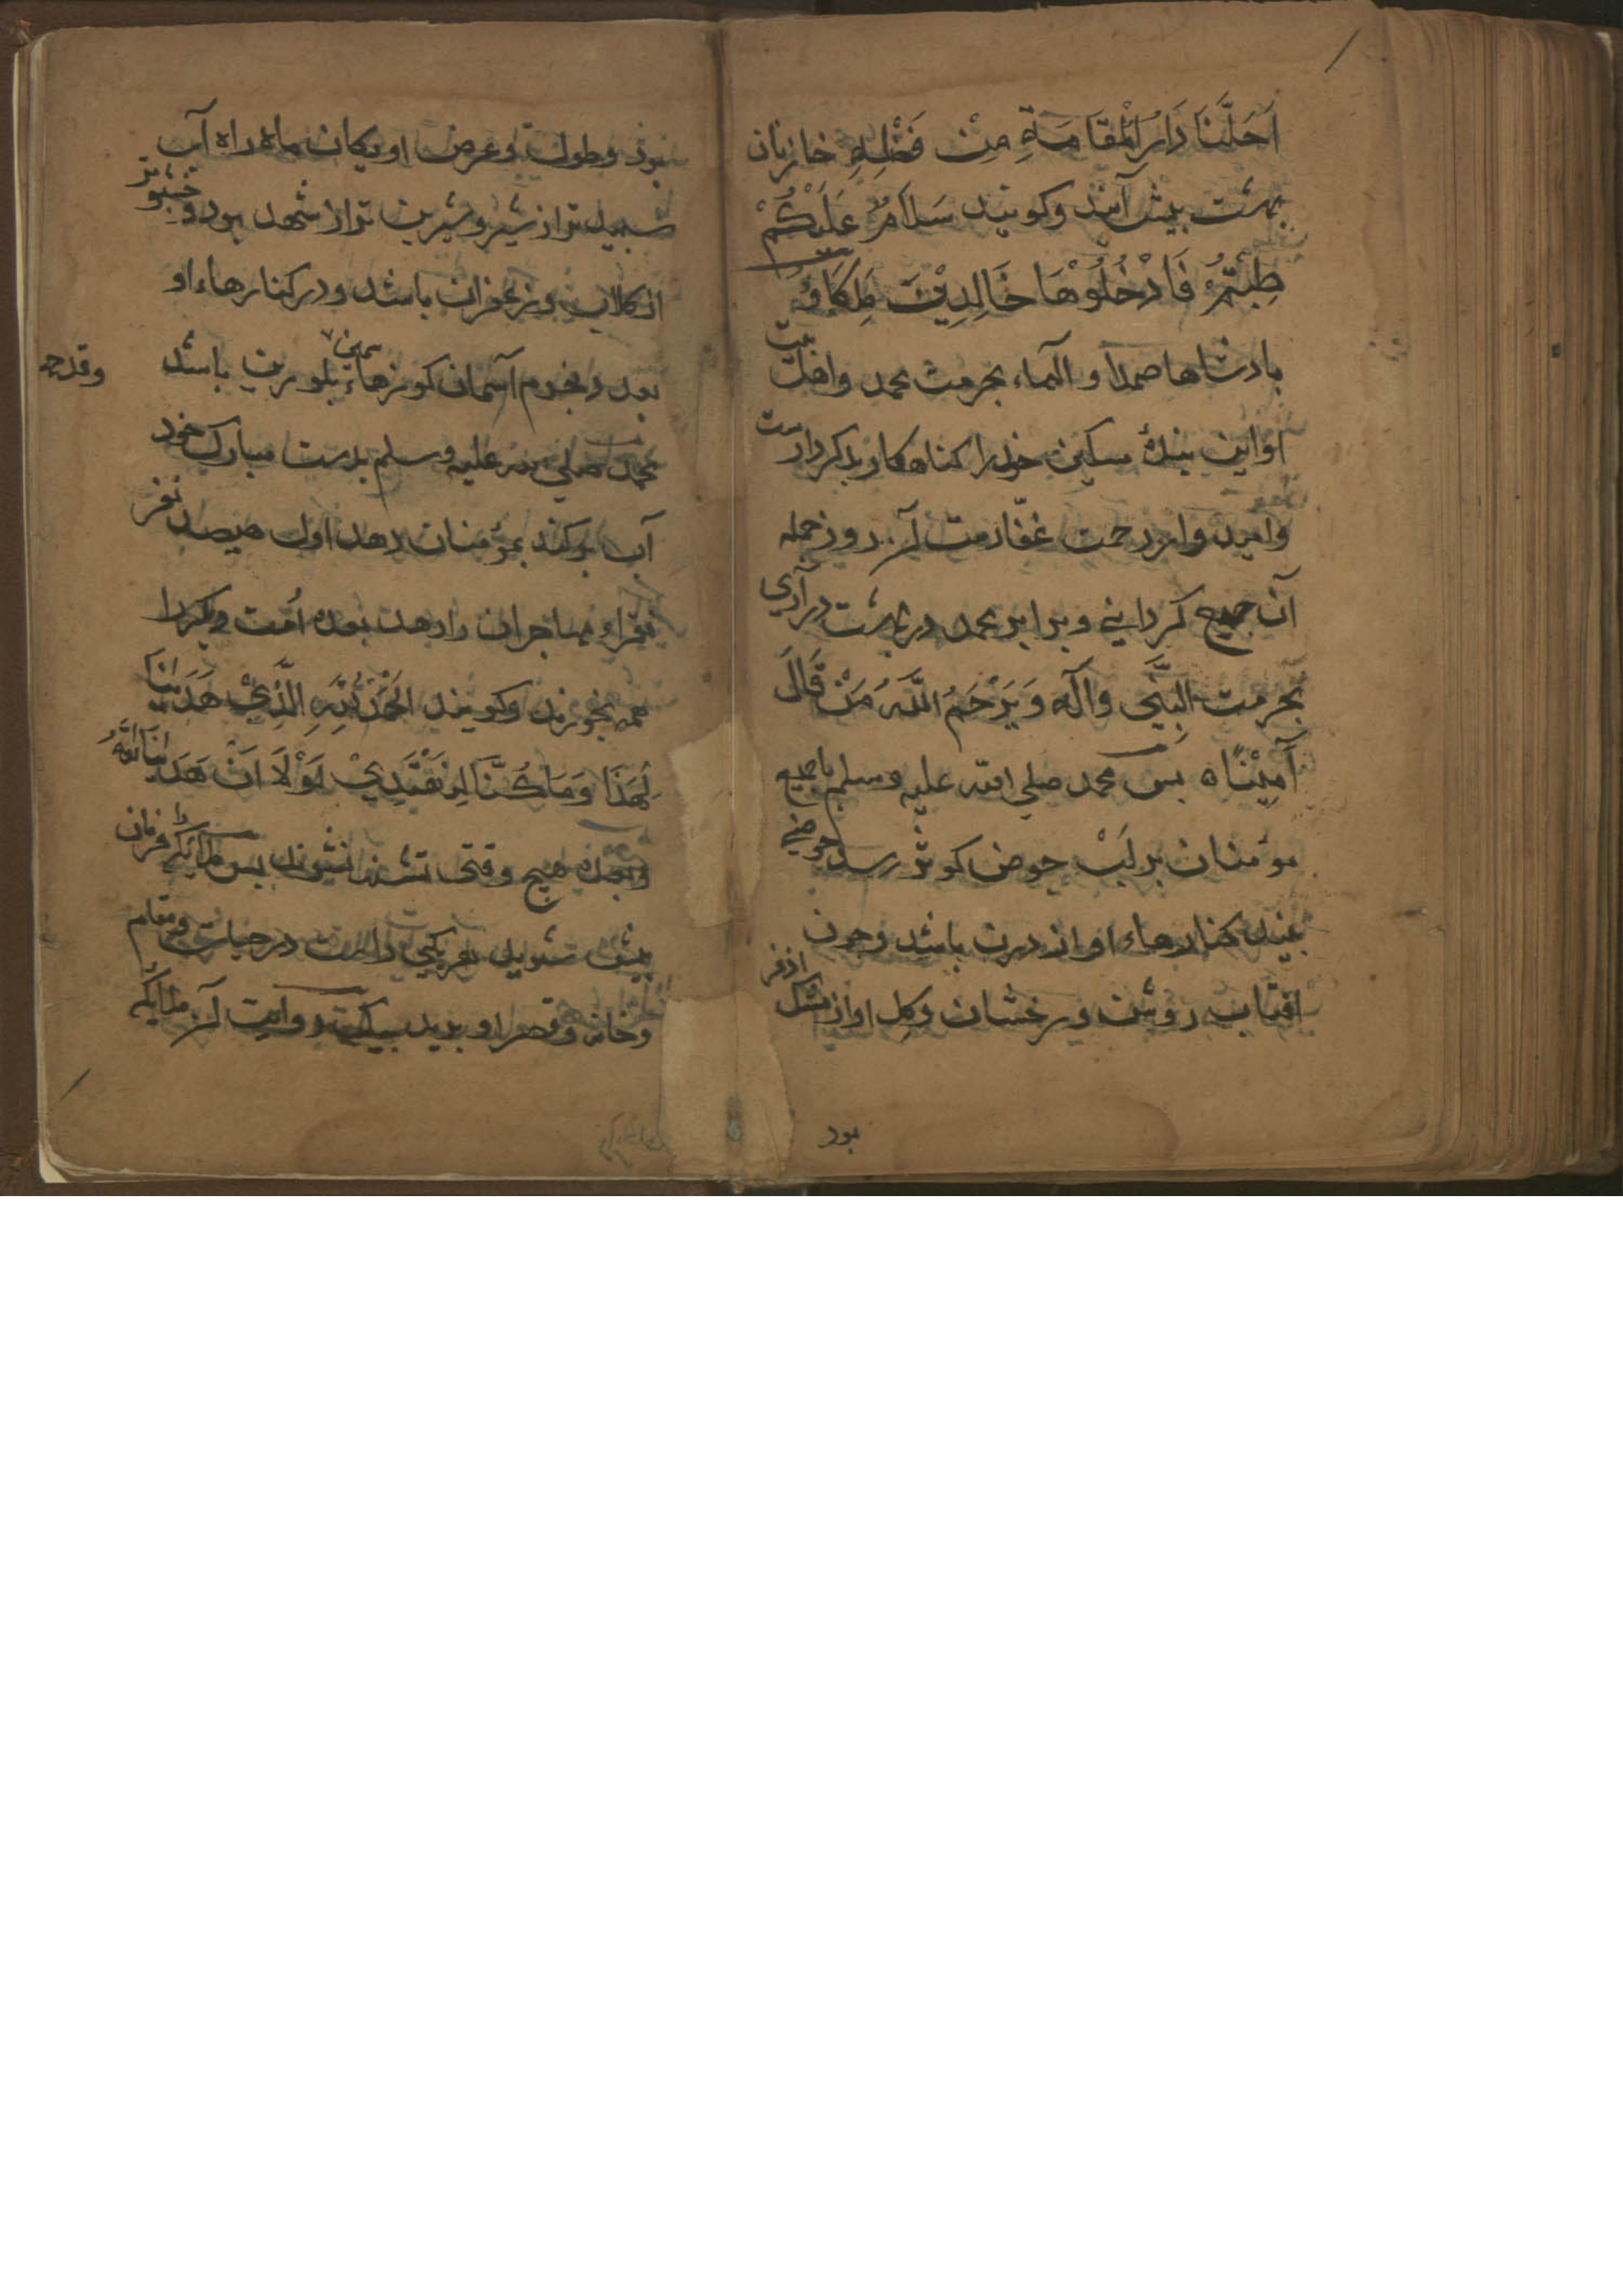 اَحَلَّنَا دَارَ الْمُقَامَةِ مِنْ فَضْلِهِ خازنان
بهشت پیش آیند وکویند سَلَامٌ عَلَیْکُمْ
طِبْتُمْ فَادْخُلُوْهَا خَالِدِیْنَ مَلِکَاوُ
بادشاها صمدا و الهاء بحرمت محمد واهل بیت
او این بندهٔ مسکین خود را کناهکار وبدکردارست
وامیدوار رحمت غفارمت آن روز جمله
آن جمیع کردانی وبرابر محمد در بهشت درآری
بحرمت النَّبِّی وآله وَیَرْحَمُ اللّٰهُ مَنْ قَالَ
آمِیْنًاه بس محمد صلی الله علیه وسلم باجمیع
مومنان بر لَبْ حوض کوثر رسد حوضی
بیند کنارهاء او از درن باشد وچون
افتاب روشن درخشان وکل او از مشک اذفر
بود
بود وطول وعرض او یکان ماه راه آب
سبید تر از شیر وشیرین تر از شهد بود وخشبوتر
از کلاب وزعفران باشد ودر کنارهاء او
بعدد نجوم آسمان کوزهاء سیمین بلورین باشد
وقدح
محمد صلی الله علیه وسلم بدست مبارک خود
آب برکند بمؤمنان دهد اول صیصد نفر
فقراء مهاجران را دهد بعده اُمت دیکر را
همه بخورند وکویند اَلْحَمْدُ لِلّٰهِ الَّذِیْ هَدَینَا
لِهٰذَا وَمَا کُنَّا لِنَهْتَدِیْ لَوْلَا اَنْ هَدَینَا اللّٰهُ
وبعده هیچ وقتی تشنه نشوند بس ملائکه را فرمان
بیش شوید هریکی را درجات ومقام
وخانه وقصر او بدید روایت آن ملائکه